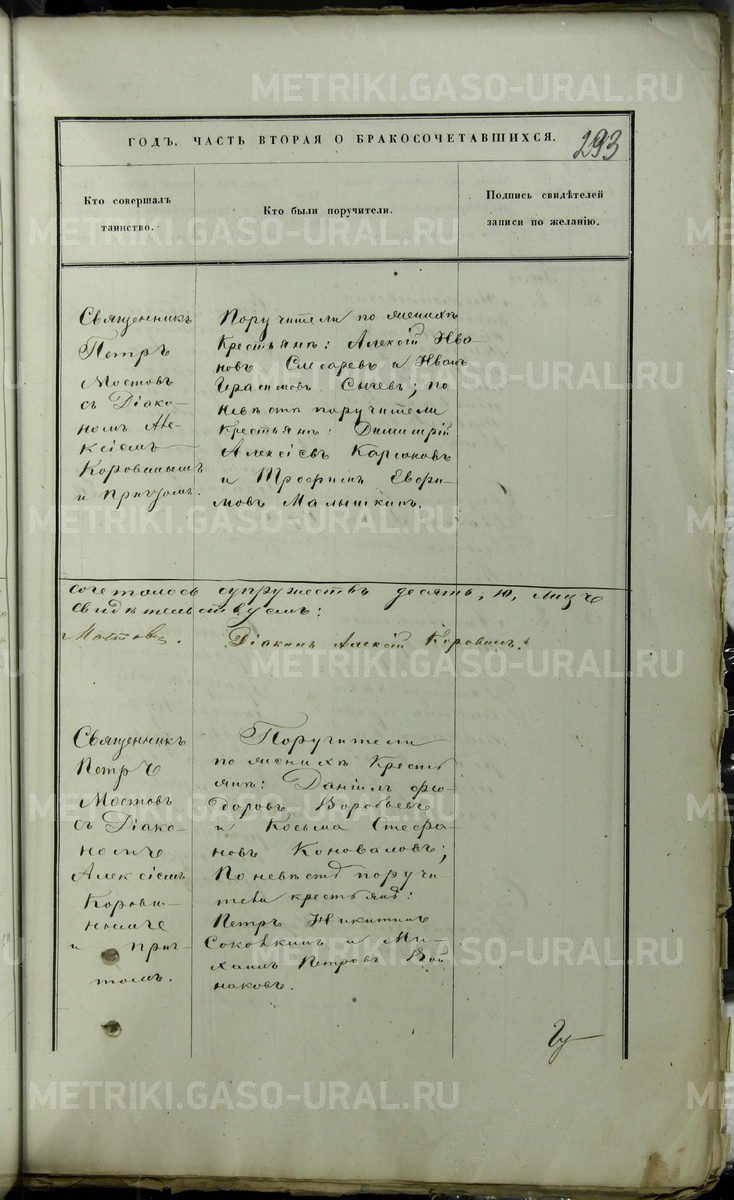 METRIKI.GASO-URAL.RU
ГОДЪ, ЧАСТЬ ВТОРАЯ О БРАКОСОЧЕТАВШИХСЯ.
293
Кто совершалъ
таинство.
Кто были поручители.
Подпись свидѣтелей
записи по желанію.
Священникъ
Петръ
Мостовъ
съ Діако-
номъ Але-
ксіемъ
Коровинымъ
и причтомъ.
Поручители по женихѣ
Крестьяне: Алексій Ива
новъ Слесаревъ и Иванъ
Герасимовъ Сычевъ; по
невѣстѣ поручители
Крестьяне: Димитрій
Алексіевъ Карповъ
и Трофимъ Евфи-
мовъ Малышкинъ.
сочеталось супружествъ десять, 10,
свидѣтельствуемъ:
Мостовъ. Діаконъ Алексій Коровинъ.
Священникъ
Петръ
Мостовъ
съ Діако-
номъ
Алексіемъ
Корови-
нымъ
и прич-
томъ.
Поручители
по женихѣ Кресть
яне: Даніилъ Фео-
доровъ Воробьевъ
и Косьма Стефа-
новъ Коноваловъ;
По невѣстѣ поручи-
тели крестьяне:
Петръ Никитинъ
Соковкинъ и Ми-
хаилъ Петровъ
наковъ.